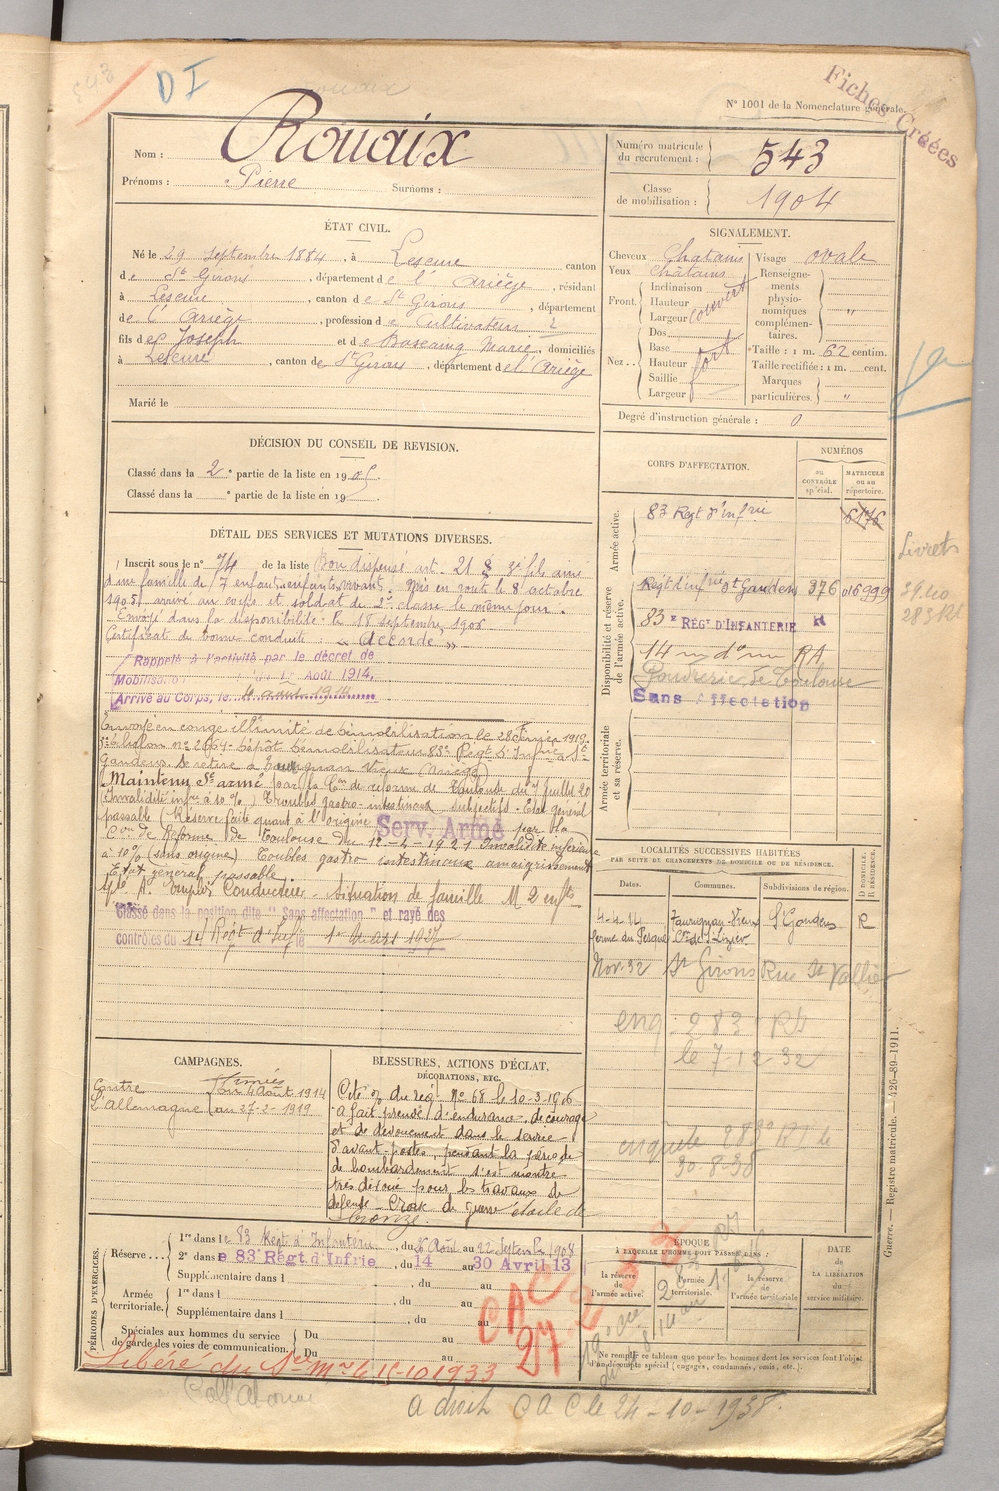 543
D I
Fiches Créées
N° 1001 de la Nomenclature générale.
Nom : Rouaix
Prénoms : Pierre Surnoms :
Numéro matricule du recrutement : 543
Classe de mobilisation : 1904
ÉTAT CIVIL.
Né le 29 septembre 1884, à Lescure canton
de St Girons, département de l'Ariège, résidant
à Lescure, canton de St Girons, département
de l'Ariège, profession de Cultivateur
fils de Joseph et de Marie, domiciliés
à Lescure, canton de St Girons, département de l'Ariège
Marié le
SIGNALEMENT.
Cheveux Chatains Visage ovale
Yeux châtains Renseignements physionomiques complémentaires. "
Front. Inclinaison Hauteur Largeur couvert
Nez... Dos Base Hauteur Saillie Largeur fort
Taille : 1 m. 62 centim.
Taille rectifiée : 1 m. cent.
Marques particulières. "
Degré d'instruction générale : 0
DÉCISION DU CONSEIL DE REVISION.
Classé dans la 2e partie de la liste en 1905.
Classé dans la e partie de la liste en 19
CORPS D'AFFECTATION.
NUMÉROS
au CONTRÔLE spécial.
MATRICULE ou au répertoire.
Armée active.
83 Regt d'infrie 6176
Disponibilité et réserve de l'armée active.
Regt d'infrie St Gaudens 376 016999
83e RÉGt D'INFANTERIE R
14 RA
Poudrerie de Toulouse
Sans Affectation
Armée territoriale et sa réserve.
Livrets
DÉTAIL DES SERVICES ET MUTATIONS DIVERSES.
Inscrit sous le n° 74 de la liste Bon dispensé art. 21 3e fils aîné
d'une famille de 7 enfants vivants. Mis en route le 8 octobre
1905, arrivé au corps et soldat de 2e classe le même jour.
Envoyé dans la disponibilité le 18 septembre 1906
Certificat de bonne conduite : "Accordé"
Rappelé à l'activité par le décret de
Mobilisation du 1er Août 1914.
Arrivé au Corps, le août 1914
Envoyé en congé illimité de démobilisation le 28 Février 1919.
échelon n° 2064 Dépôt démobilisateur 83e Régt d'Infrie St
Gaudens se retire à Taurignan Vieux (Ariège)
Maintenu Sce armé par la Con de réforme de Toulouse du 7 juillet 20
(Invalidité infre à 10 %) Troubles gastro-intestinaux subjectifs. Etat général
passable (Réserve faite quant à l'origine Serv. Armé par la
Con de Réforme de Toulouse du 1e-4-1921 Invalidité inférieure
à 10% (sans origine) Troubles gastro intestinaux amaigrissement
Etat général passable
Conducteur - Situation de famille M 2 enfts
Classé dans la position dite "Sans affectation" et rayé des
contrôles du 14 Régt d'Infie 1er Mars 1927
LOCALITÉS SUCCESSIVES HABITÉES
PAR SUITE DE CHANGEMENTS DE DOMICILE OU DE RÉSIDENCE.
Dates. Communes. Subdivisions de région. D. DOMICILE, R. RÉSIDENCE.
4-4-14 Taurignan-Vieux St Gaudens R
ferme du Pesqué Con de St Lizier
Nov. 32 St Girons Rue St Vallier
enq. 283 Rt
le 7-12-32
enquête 283e RT le
30-8-35
CAMPAGNES.
Contre l'Allemagne
Armées
du 4 Août 1914
au 27-2-1919
BLESSURES, ACTIONS D'ÉCLAT,
DÉCORATIONS, ETC.
Cité % du régt N° 68 le 10-3-1916
"a fait preuve d'endurance, de courage
et de dévouement dans le service
d'avant-postes, pendant la période
de bombardement s'est montré
très dévoué pour les travaux de
défense - Croix de guerre étoile de
bronze.
PÉRIODES D'EXERCICES.
Réserve...
1re dans le 83 Régt d'Infanterie, du 26 Août au 22 Septembre 1908
2e dans le 83e Régt d'Infrie, du 14 au 30 Avril 13
Supplémentaire dans l , du au
Armée territoriale.
1re dans l , du au
Supplémentaire dans l , du au
Spéciales aux hommes du service de garde des voies de communication.
Du au
Du au
CAC
27
ÉPOQUE
À LAQUELLE L'HOMME DOIT PASSER DANS :
la réserve de l'armée active.
l'armée territoriale.
la réserve de l'armée territoriale
DATE DE LA LIBÉRATION du service militaire.
Ne remplir ce tableau que pour les hommes dont les services font l'objet d'un décompte spécial (engagés, condamnés, omis, etc.).
Libéré du Sce Mre le 15-10-1933
a droit CAC le 24-10-1938.
Guerre. — Registre matricule. — 426-89-1911.